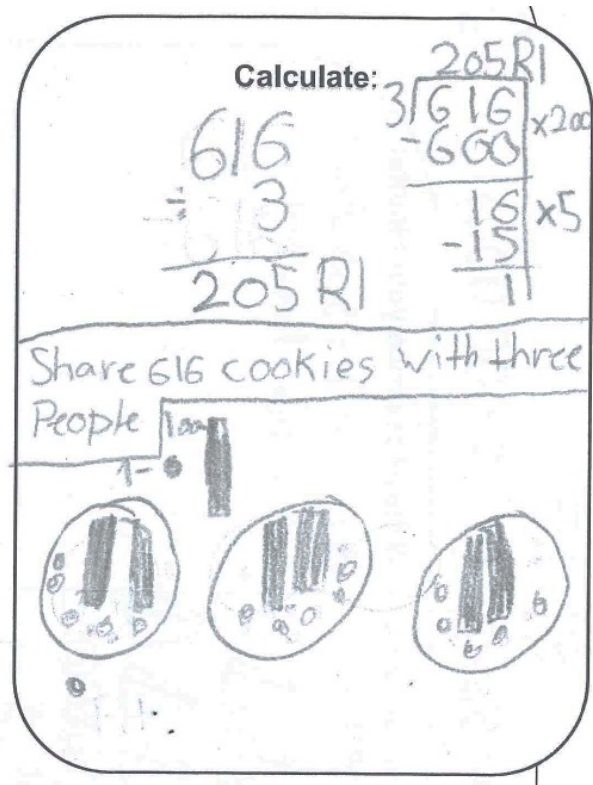 Calculate:
616
÷ 3
205 R1
205 R1
3 616 x200
-600
16 x5
-15
1
Share 616 cookies with three
People
100
1-